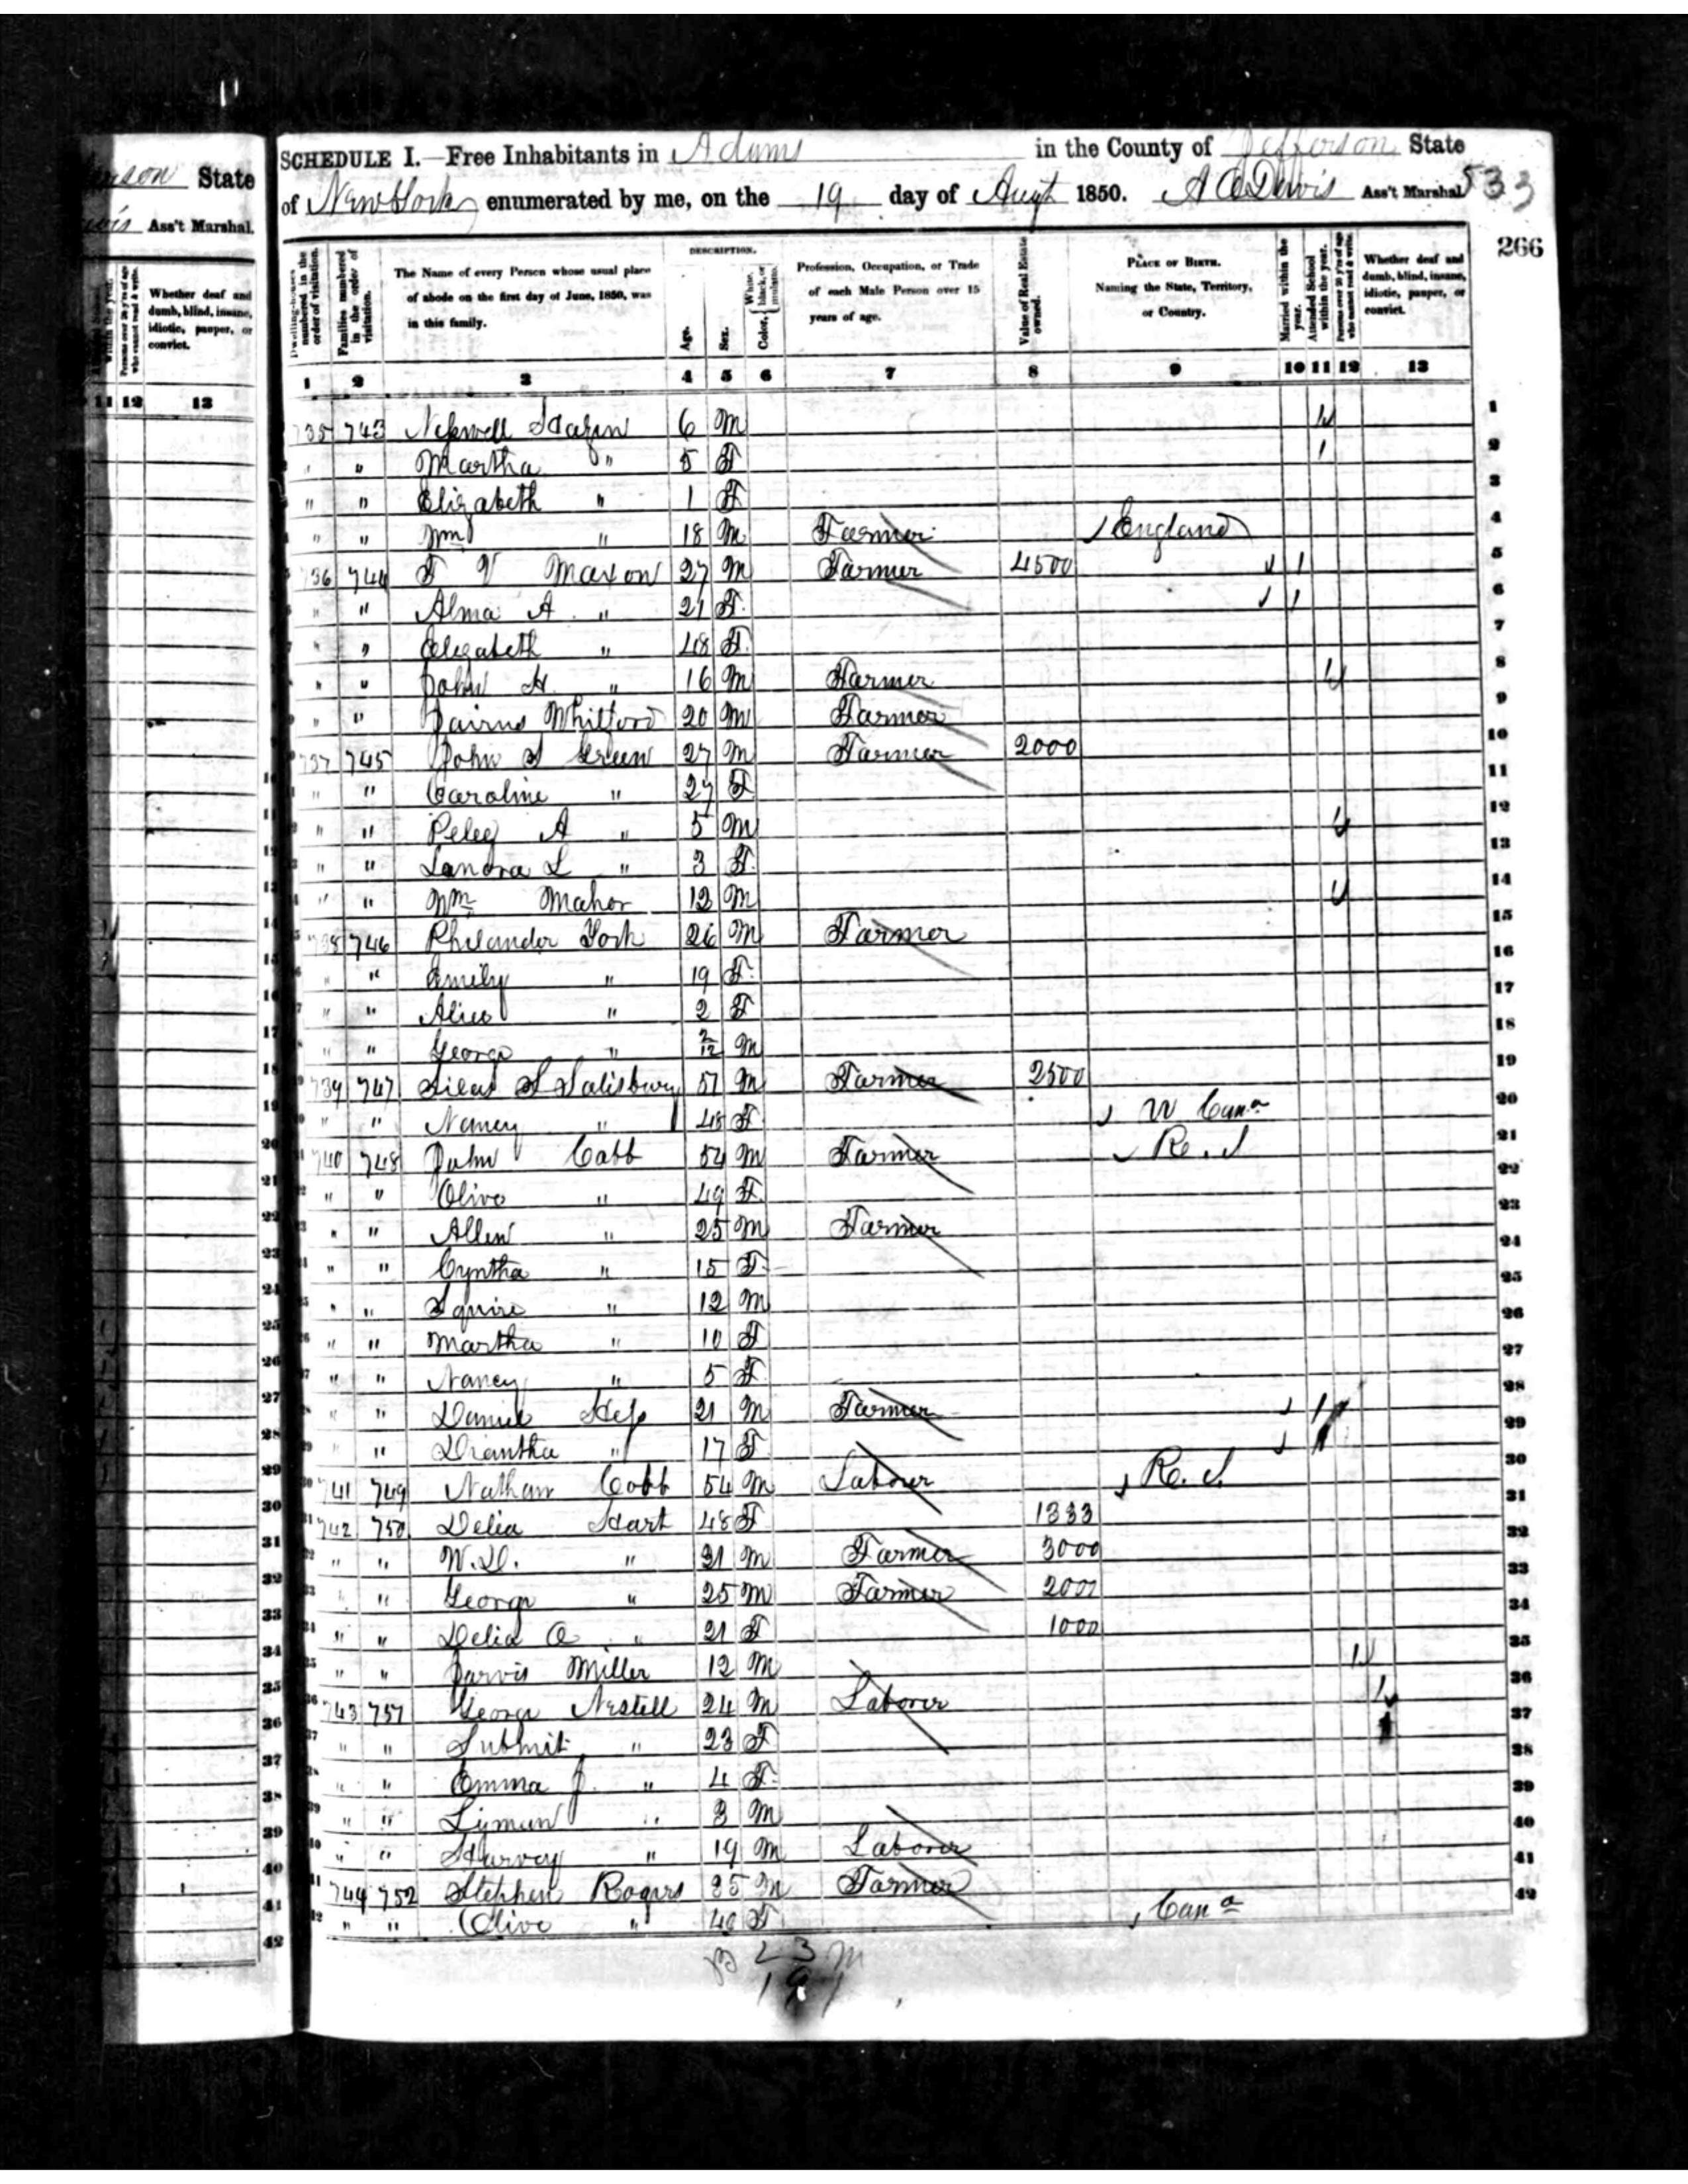 SCHEDULE I.—Free Inhabitants in Adams in the County of Jefferson State
of New York enumerated by me, on the 19 day of Augt 1850. Ass't Marshal 533
266
State
Ass't Marshal.
DESCRIPTION.
Dwelling-houses numbered in the order of visitation.
Families numbered in the order of visitation.
The Name of every Person whose usual place of abode on the first day of June, 1850, was in this family.
Age.
Sex.
Color, White, black, or mulatto.
Profession, Occupation, or Trade of each Male Person over 15 years of age.
Value of Real Estate owned.
PLACE OF BIRTH. Naming the State, Territory, or Country.
Married within the year.
Attended School within the year.
Persons over 20 y'rs of age who cannot read & write.
Whether deaf and dumb, blind, insane, idiotic, pauper, or convict.
Whether deaf and dumb, blind, insane, idiotic, pauper, or convict.
1 2 3 4 5 6 7 8 9 10 11 12 13
11 12 13
735 743 6 M 1
" " Martha " 5 F 1
" " Elizabeth " 1 F
" " Wm " 18 M Farmer England
736 744 Maxon 27 M Farmer 4500 1
" " Alma A. " 21 F 1
" " Elizabeth " 48 F
" " John H. " 16 M Farmer
" " Whitford 20 M Farmer
737 745 John S Green 27 M Farmer 2000
" " Caroline " 27 F
" " Peleg A " 5 M
" " L " 3 F
" " Wm 12 M
738 746 Philander York 26 M Farmer
" " Emily " 19 F
" " Alice " 2 F
" " George " M
739 747 Silas S Salisbury 51 M Farmer 2500
" " Nancy " 48 F
740 748 John Cobb 54 M Farmer R. I
" " Olive " 49 F
" " Allen " 25 M Farmer
" " Cyntha " 15 F
" " Squire " 12 M
" " Martha " 10 F
" " Nancy " 5 F
" " Daniel 21 M Farmer 1
" " Diantha " 17 F 1
741 749 Nathan Cobb 54 M Laborer R. I.
742 750 Delia Hart 48 F 1333
" " W. D. " 31 M Farmer 3000
" " George " 25 M Farmer 2000
" " Delia " 21 F 1000
" " Jarvis Miller 12 M 1
743 751 George Nestell 24 M Laborer 1
" " Submit " 23 F
" " Emma J. " 4 F
" " Lyman " 3 M
" " Harvey " 19 M Laborer
744 752 Stephen Rogers 35 M Farmer
" " Olive " 40 F Cana
23 M
19